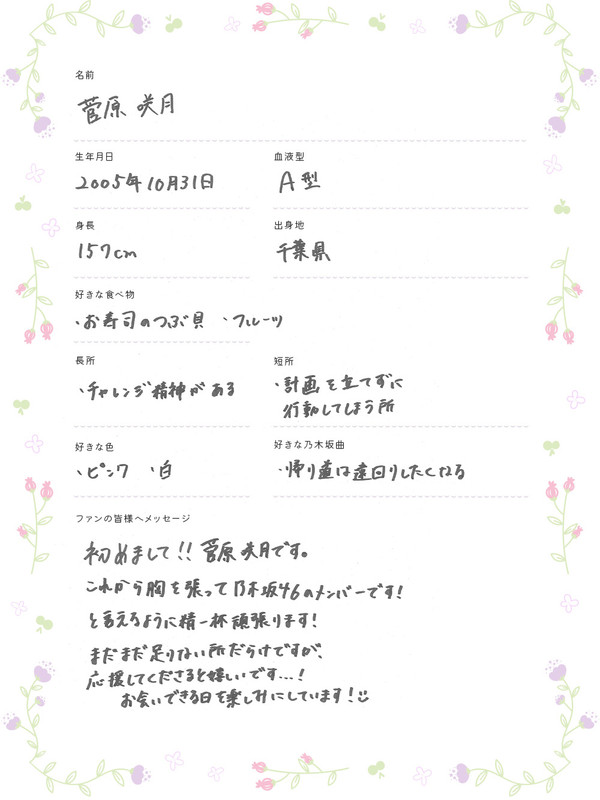 名前
菅原 咲月
生年月日
2005年10月31日
血液型
A型
身長
157cm
出身地
千葉県
好きな食べ物
・お寿司のつぶ貝 ・フルーツ
長所
・チャレンジ精神がある
短所
・計画を立てずに
行動してしまう所
好きな色
・ピンク ・白
好きな乃木坂曲
・帰り道は遠回りしたくなる
ファンの皆様へメッセージ
初めまして!! 菅原 咲月です。
これから胸を張って乃木坂46のメンバーです!
と言えるように精一杯頑張ります!
まだまだ足りない所だらけですが、
応援してくださると嬉しいです...!
お会いできる日を楽しみにしています!